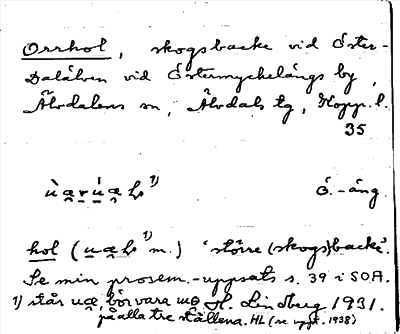 Orrhol, skogsbacke vid Öster-
Dalälven vid Östermyckelängs by,
Älvdalens sn, Älvdals tg, Kopp. l.
35
Ö.-äng.
hol (
1)
m.) 'större (skogs)backe'.
Se min prosem.-uppsats s. 39 i SOA.
1) står uæ, bör vara uɵ H. Lindberg 1931.
på alla tre ställena. HL (se uppt. 1938)